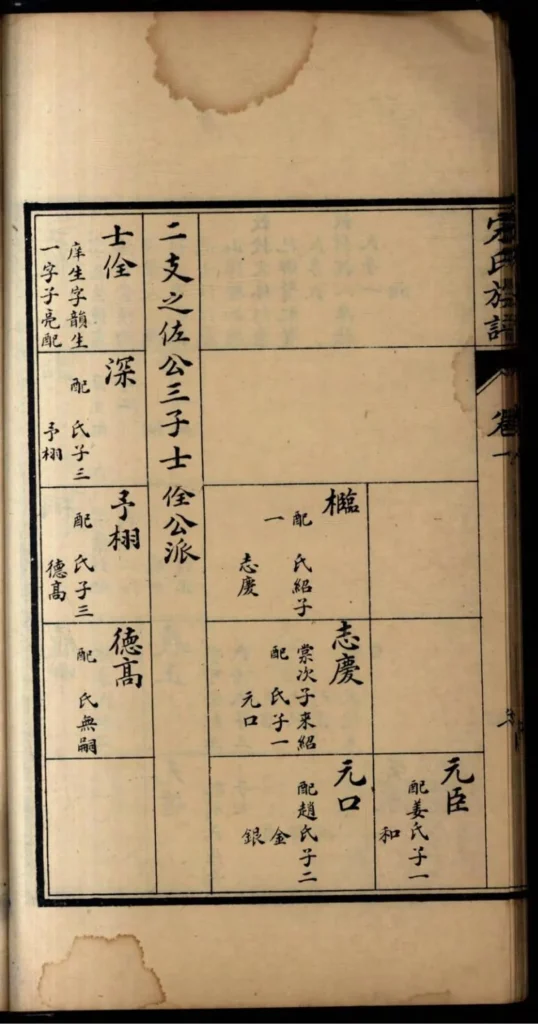 宋氏族譜
卷一
元臣
配姜氏子一
和
檻
配 氏紹子
一
志慶
志慶
棠次子來紹
配 氏子一
元口
元口
配趙氏子二
金
銀
二支之佐公三子士佺公派
士佺
庠生字韻生
一字子亮配
深
配 氏子三
予栩
予栩
配 氏子三
德髙
德髙
配 氏無嗣